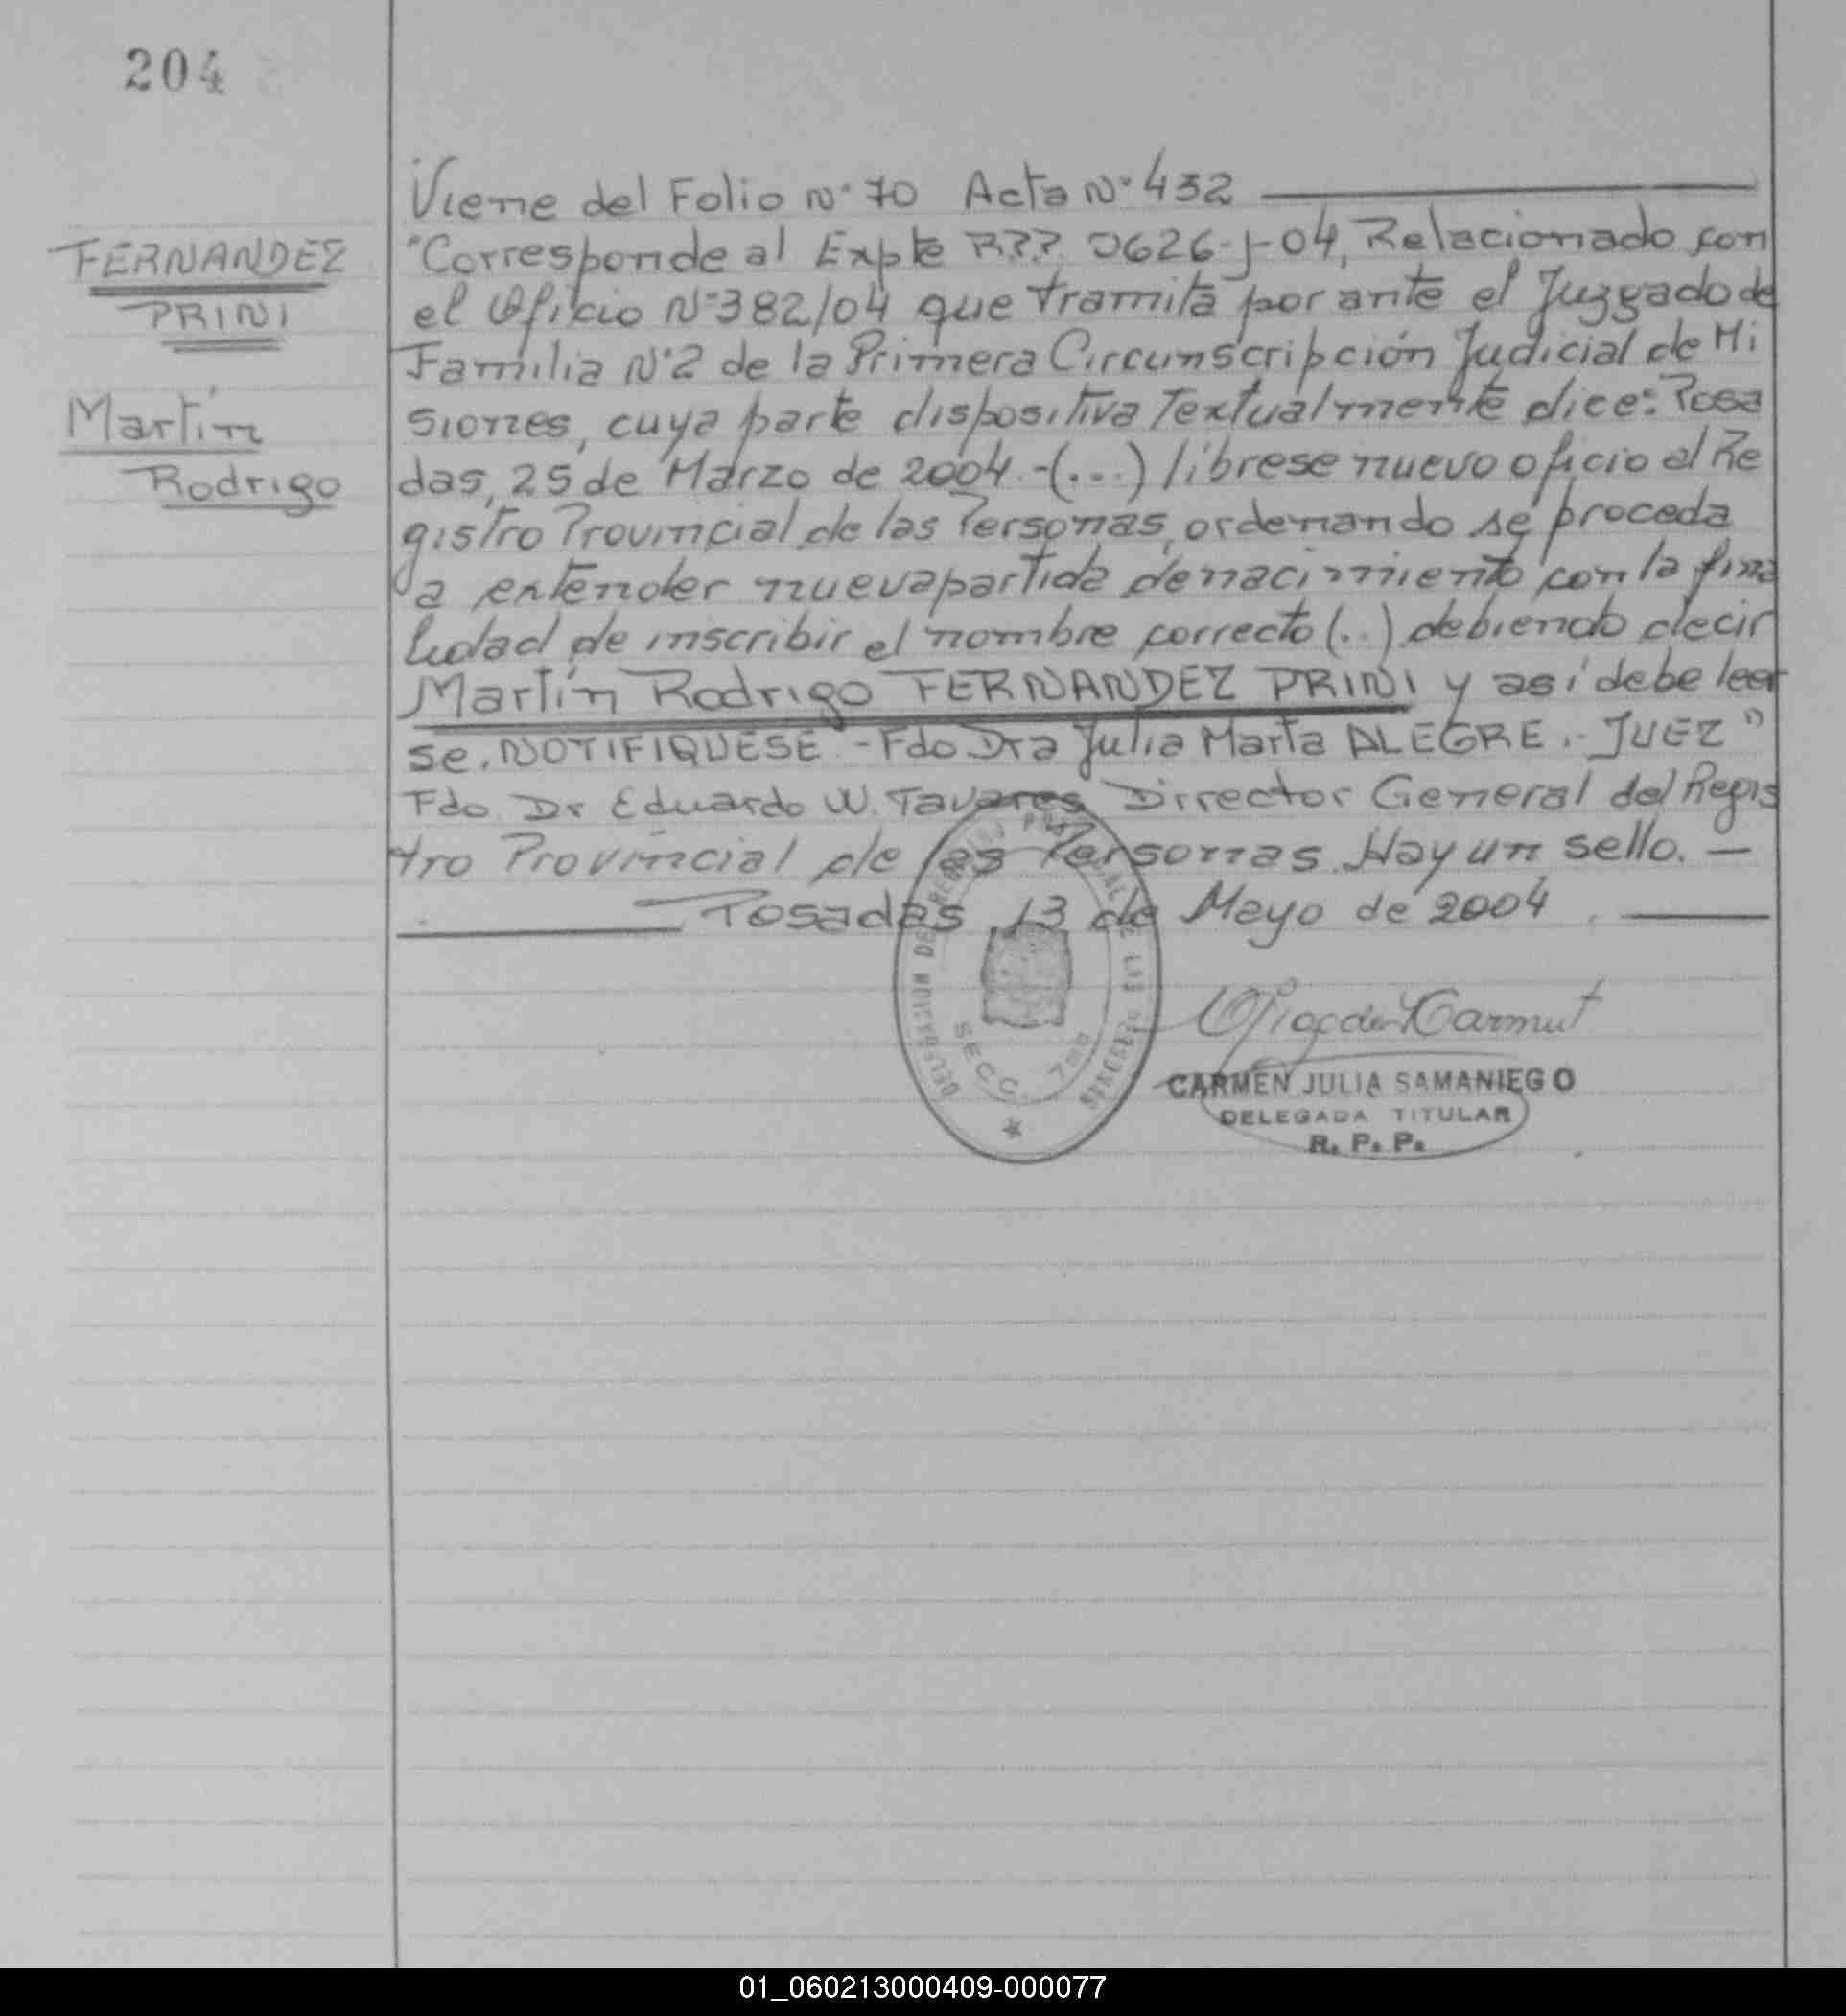 204
FERNANDEZ
PRINI
Martín
Rodrigo
Viene del Folio Nº 70 Acta Nº 432
"Corresponde al Expte R.P.P. 0626-J-04, Relacionado con
el Oficio Nº 382/04 que tramita por ante el Juzgado de
Familia Nº 2 de la Primera Circunscripción Judicial de Mi
siones, cuya parte dispositiva Textualmente dice: Posa
das, 25 de Marzo de 2004.-(...) líbrese nuevo oficio al Re
gistro Provincial de las Personas, ordenando se proceda
a extender nueva partida de nacimiento con la fina
lidad de inscribir el nombre correcto (..) debiendo decir
Martín Rodrigo FERNANDEZ PRINI y así debe leer
se. NOTIFIQUESE.- Fdo Dra Julia Marta ALEGRE.- JUEZ"
Fdo. Dr Eduardo W. Tavares Director General del Regis
tro Provincial de las Personas. Hay un sello. —
Posadas, 13 de Mayo de 2004.
DELEGACION DEL REGISTRO PROVINCIAL DE LAS PERSONAS
SECC. 7ma
CARMEN JULIA SAMANIEGO
DELEGADA TITULAR
R. P. P.
01_060213000409-000077